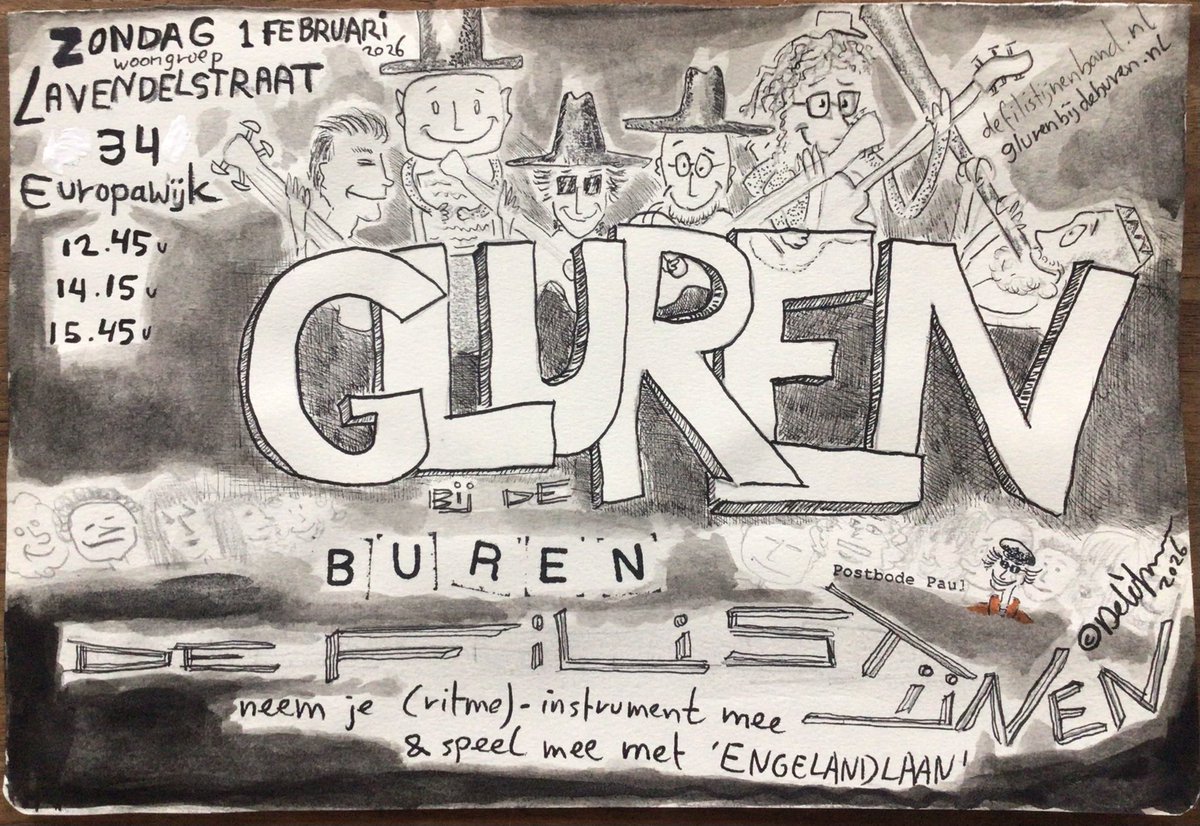 ZONDAG 1 FEBRUARI
2026
woongroep
LAVENDELSTRAAT
34
EUROPAWIJK
12.45u
14.15u
15.45u
defilistijnenband.nl
glurenbijdeburen.nl
GLUREN
BIJ DE
BUREN
Postbode Paul
DE FiLiSTIJNEN
neem je (ritme)-instrument mee
& speel mee met 'ENGELANDLAAN'
©
2026